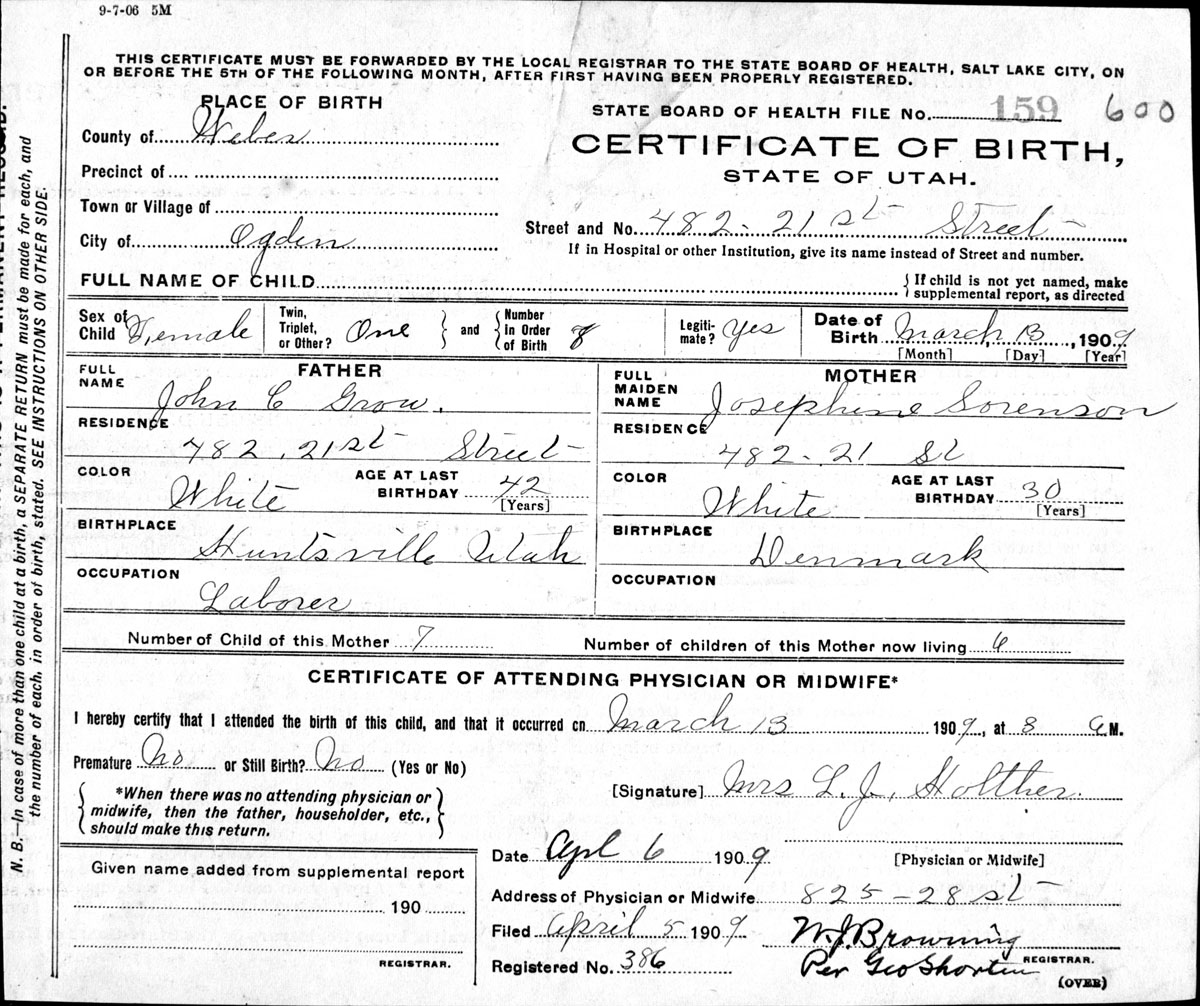 9-7-06 5M
THIS CERTIFICATE MUST BE FORWARDED BY THE LOCAL REGISTRAR TO THE STATE BOARD OF HEALTH, SALT LAKE CITY, ON
OR BEFORE THE 5TH OF THE FOLLOWING MONTH, AFTER FIRST HAVING BEEN PROPERLY REGISTERED.
PLACE OF BIRTH
STATE BOARD OF HEALTH FILE No. 159 600
County of Weber
CERTIFICATE OF BIRTH,
STATE OF UTAH.
Precinct of
Town or Village of
Street and No. 482 - 21st Street
City of Ogden
If in Hospital or other Institution, give its name instead of Street and number.
FULL NAME OF CHILD
{ If child is not yet named, make
supplemental report, as directed
Sex of Child Female
Twin, Triplet, or Other? One } and { Number In Order of Birth 8
Legiti- mate? Yes
Date of Birth March 13, 1909
[Month] [Day] [Year]
FATHER
FULL NAME John C Grow.
RESIDENCE 482. 21st Street
COLOR White AGE AT LAST BIRTHDAY 42
[Years]
BIRTHPLACE Huntsville Utah
OCCUPATION Laborer
MOTHER
FULL MAIDEN NAME Josephine Sorenson
RESIDENCE 482 - 21 St
COLOR White AGE AT LAST BIRTHDAY 30
[Years]
BIRTHPLACE Denmark
OCCUPATION
Number of Child of this Mother 7 Number of children of this Mother now living 6
CERTIFICATE OF ATTENDING PHYSICIAN OR MIDWIFE*
I hereby certify that I attended the birth of this child, and that it occurred on March 13 1909, at 8 a M.
Premature No or Still Birth? No (Yes or No)
{ *When there was no attending physician or
midwife, then the father, householder, etc.,
should make this return. }
[Signature] Mrs L. J. Holther.
[Physician or Midwife]
Date Apl 6 1909
Address of Physician or Midwife 825 - 28 st
Filed April 5 1909
W. J. Browning
Registered No. 386
Per Geo Shorten REGISTRAR.
(OVER)
Given name added from supplemental report
190
REGISTRAR.
N. B.—In case of more than one child at a birth, a SEPARATE RETURN must be made for each, and
the number of each, in order of birth, stated. SEE INSTRUCTIONS ON OTHER SIDE.